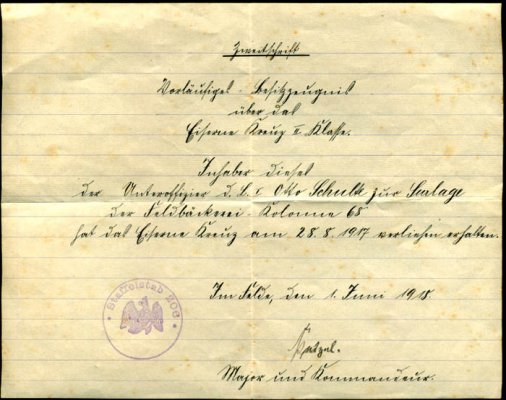 Zweitschrift
Vorläufiges Besitzzeugnis
über das
Eiserne Kreuz II. Klasse.
Inhaber dieses
der Unteroffizier d. L. I Otto Schulte zur Surlage
der Feldbäckerei-Kolonne 68
hat das Eiserne Kreuz am 28.8.1917 verliehen erhalten.
Im Felde, den 1. Juni 1918.
Staffelstab 206
Major und Kommandeur.